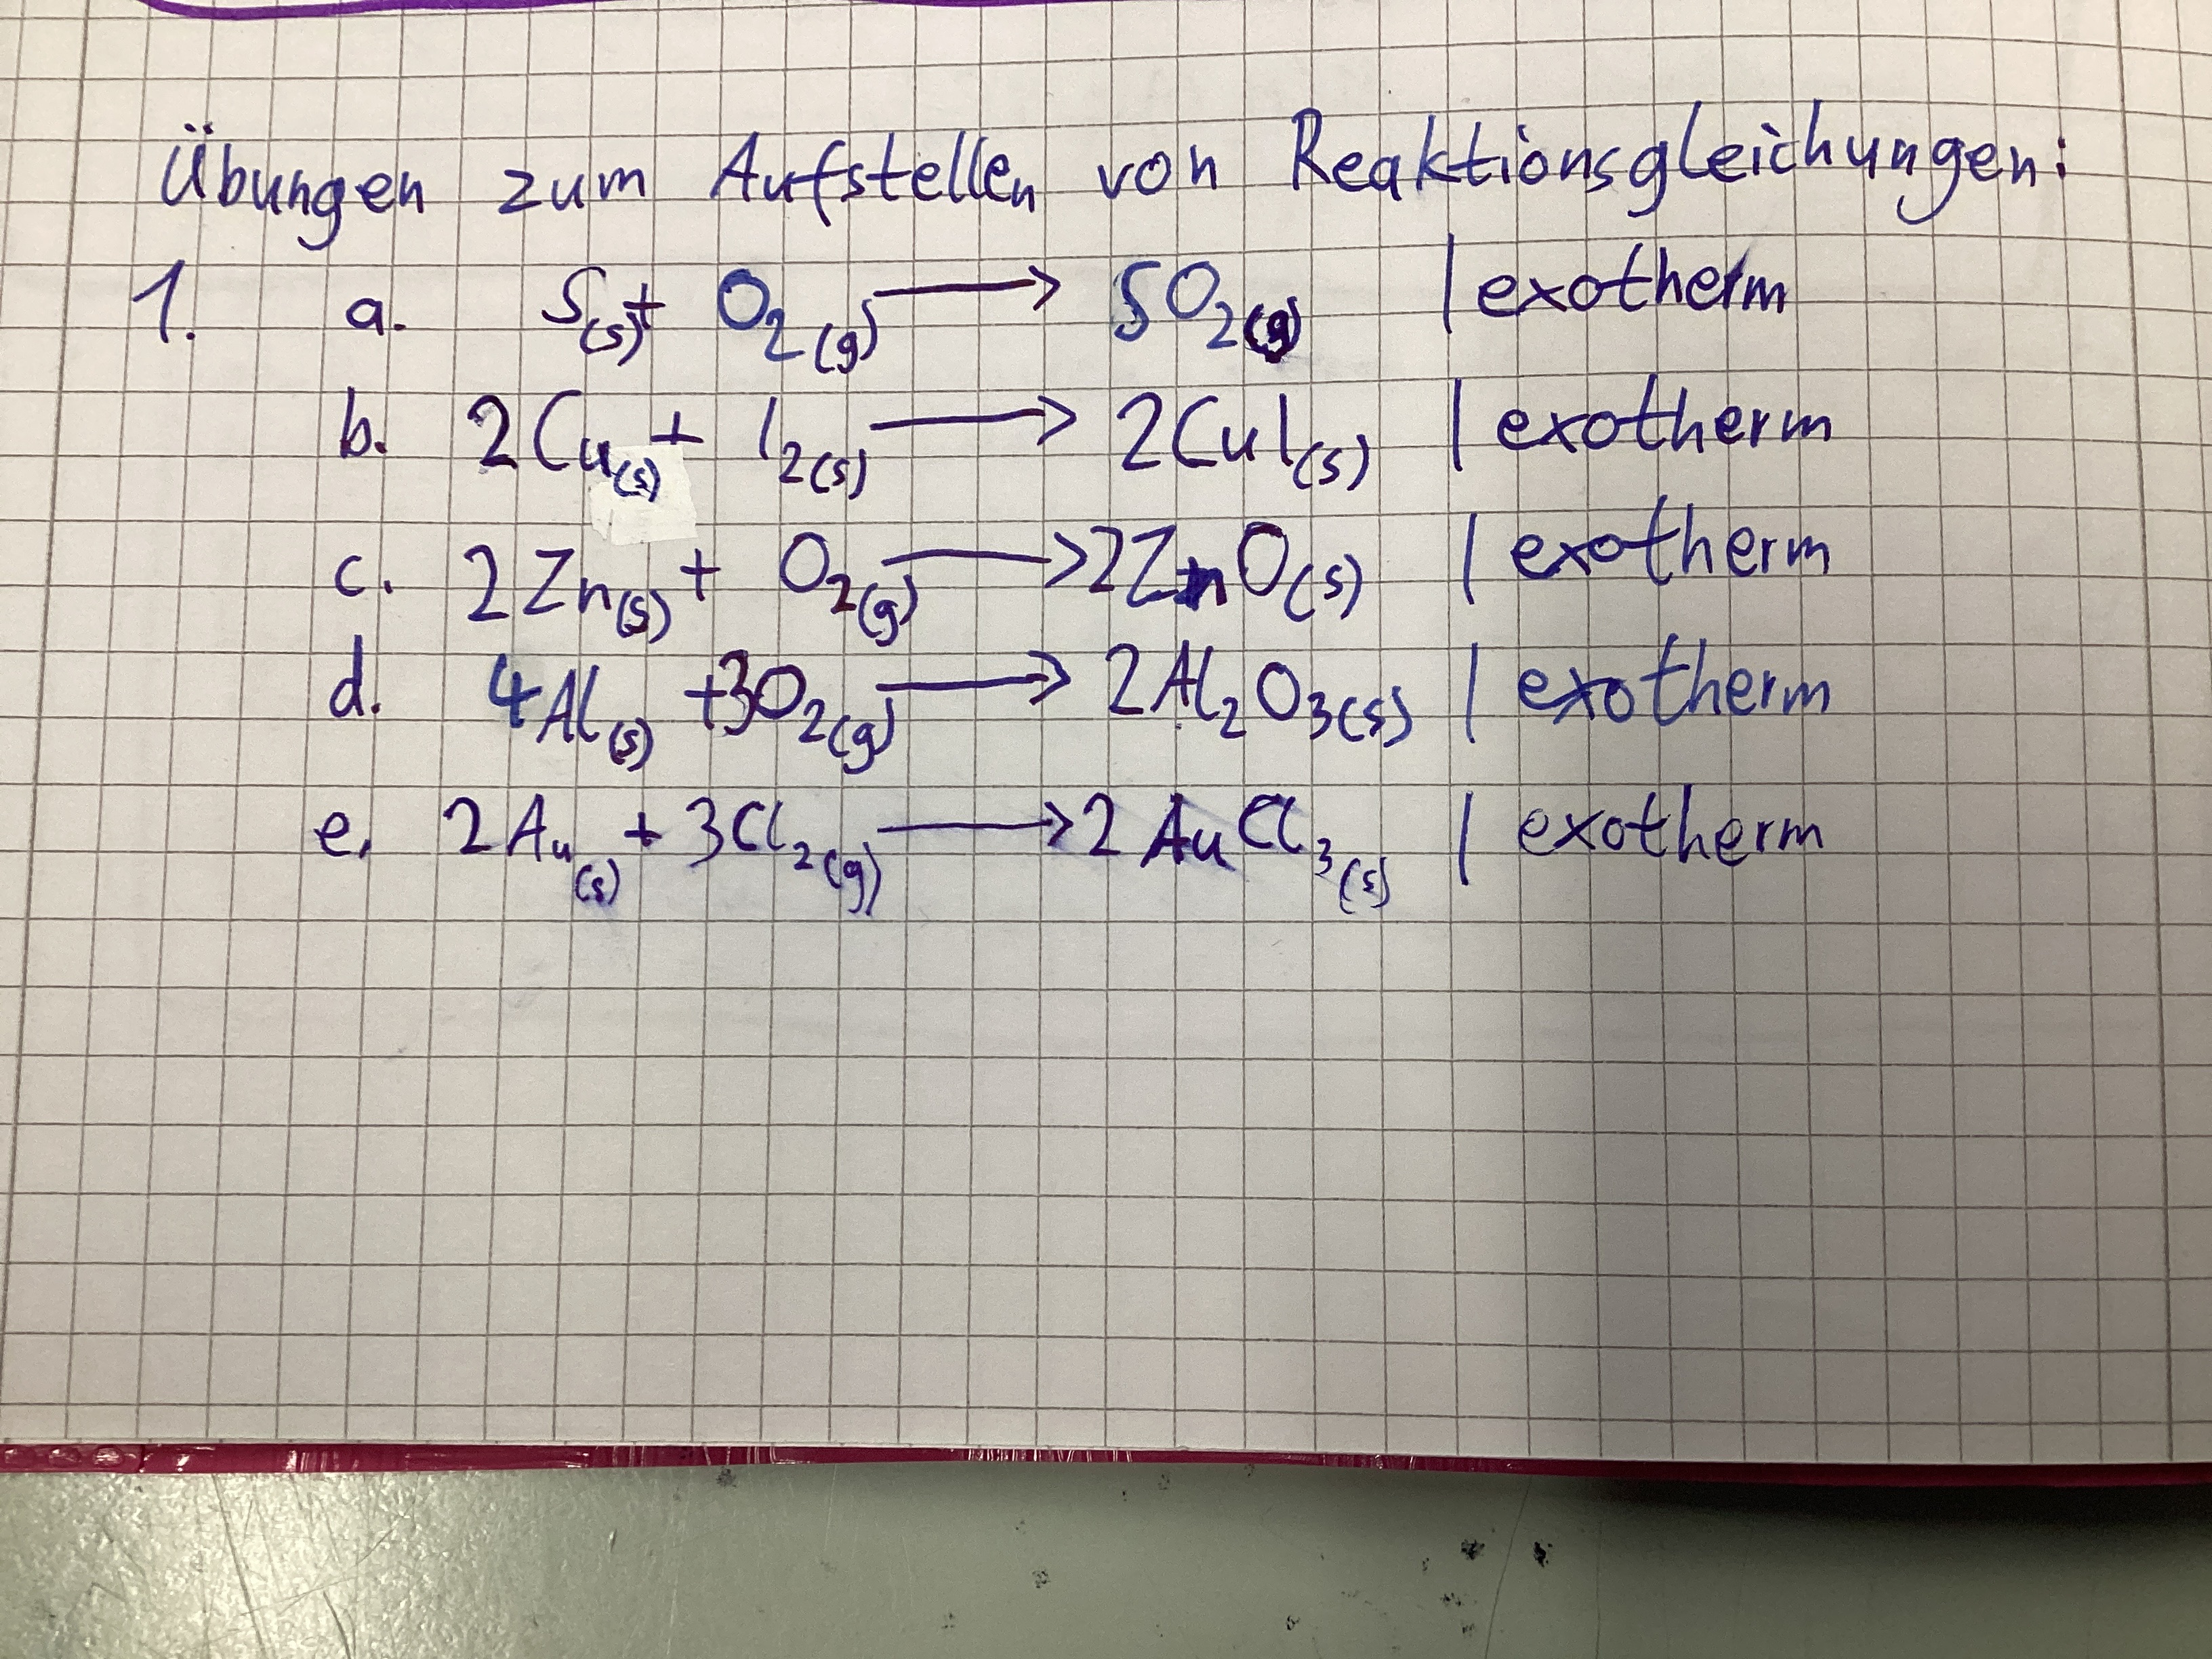 Übungen zum Aufstellen von Reaktionsgleichungen:
1. a. S(s) + O₂(g) ⟶ SO₂(g) | exotherm
b. 2Cu(s) + I₂(s) ⟶ 2CuI(s) | exotherm
c. 2Zn(s) + O₂(g) ⟶ 2ZnO(s) | exotherm
d. 4Al(s) + 3O₂(g) ⟶ 2Al₂O₃(s) | exotherm
e. 2Au(s) + 3Cl₂(g) ⟶ 2AuCl₃(s) | exotherm